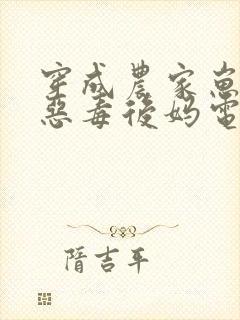 穿成農家崽
惡毒後媽電
隋吉平